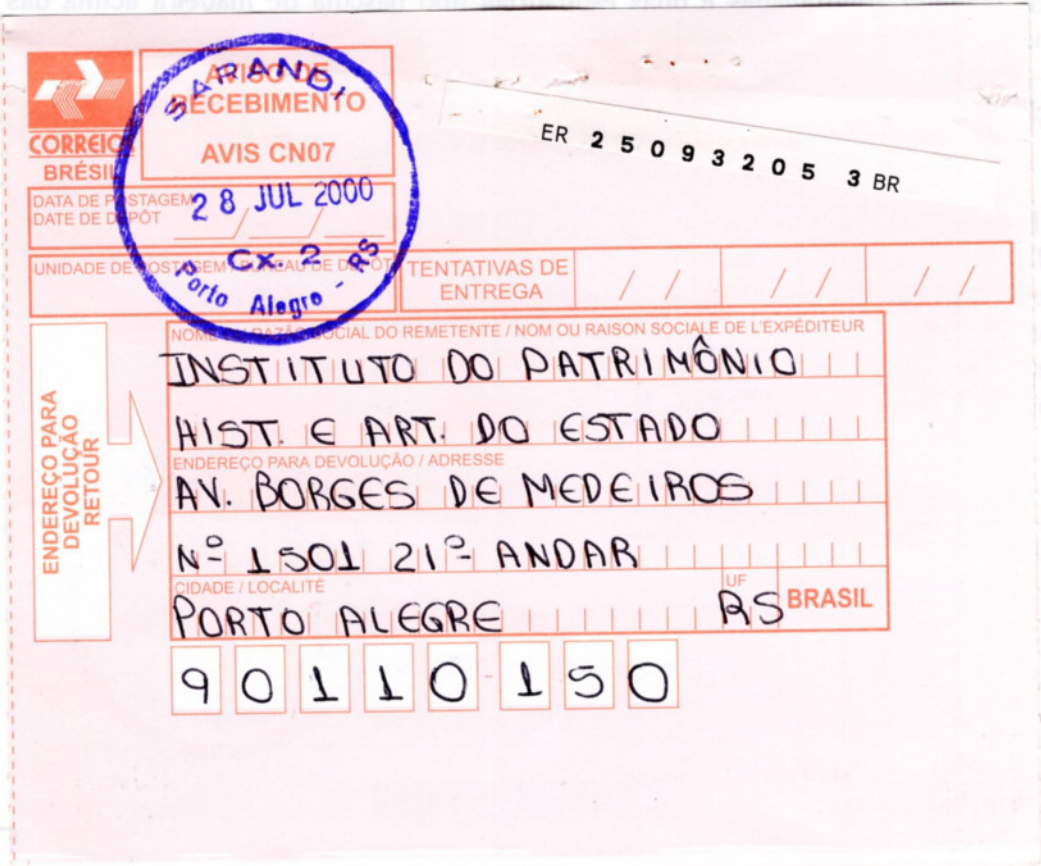 AVISO DE
RECEBIMENTO
AVIS CN07
CORREIOS
BRÉSIL
SARANDI
28 JUL 2000
Cx. 2
Porto Alegre - RS
ER 25093205 3 BR
DATA DE POSTAGEM
DATE DE DÉPÔT
UNIDADE DE POSTAGEM / BUREAU DE DÉPÔT
TENTATIVAS DE
ENTREGA
/ /
/ /
/ /
ENDEREÇO PARA
DEVOLUÇÃO
RETOUR
NOME OU RAZÃO SOCIAL DO REMETENTE / NOM OU RAISON SOCIALE DE L'EXPÉDITEUR
INSTITUTO DO PATRIMÔNIO
HIST. E ART. DO ESTADO
ENDEREÇO PARA DEVOLUÇÃO / ADRESSE
AV. BORGES DE MEDEIROS
Nº 1501 21º ANDAR
CIDADE / LOCALITÉ
UF
PORTO ALEGRE RS BRASIL
90110-150